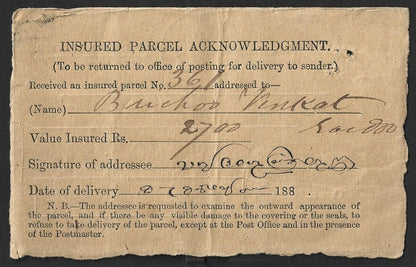 INSURED PARCEL ACKNOWLEDGMENT.
(To be returned to office of posting for delivery to sender.)
Received an insured parcel No. 361 addressed to—
(Name) Venkat
Value Insured Rs. 2700
Signature of addressee
Date of delivery 188 .
N. B.—The addressee is requested to examine the outward appearance of the parcel, and if there be any visible damage to the covering or the seals, to refuse to take delivery of the parcel, except at the Post Office and in the presence of the Postmaster.